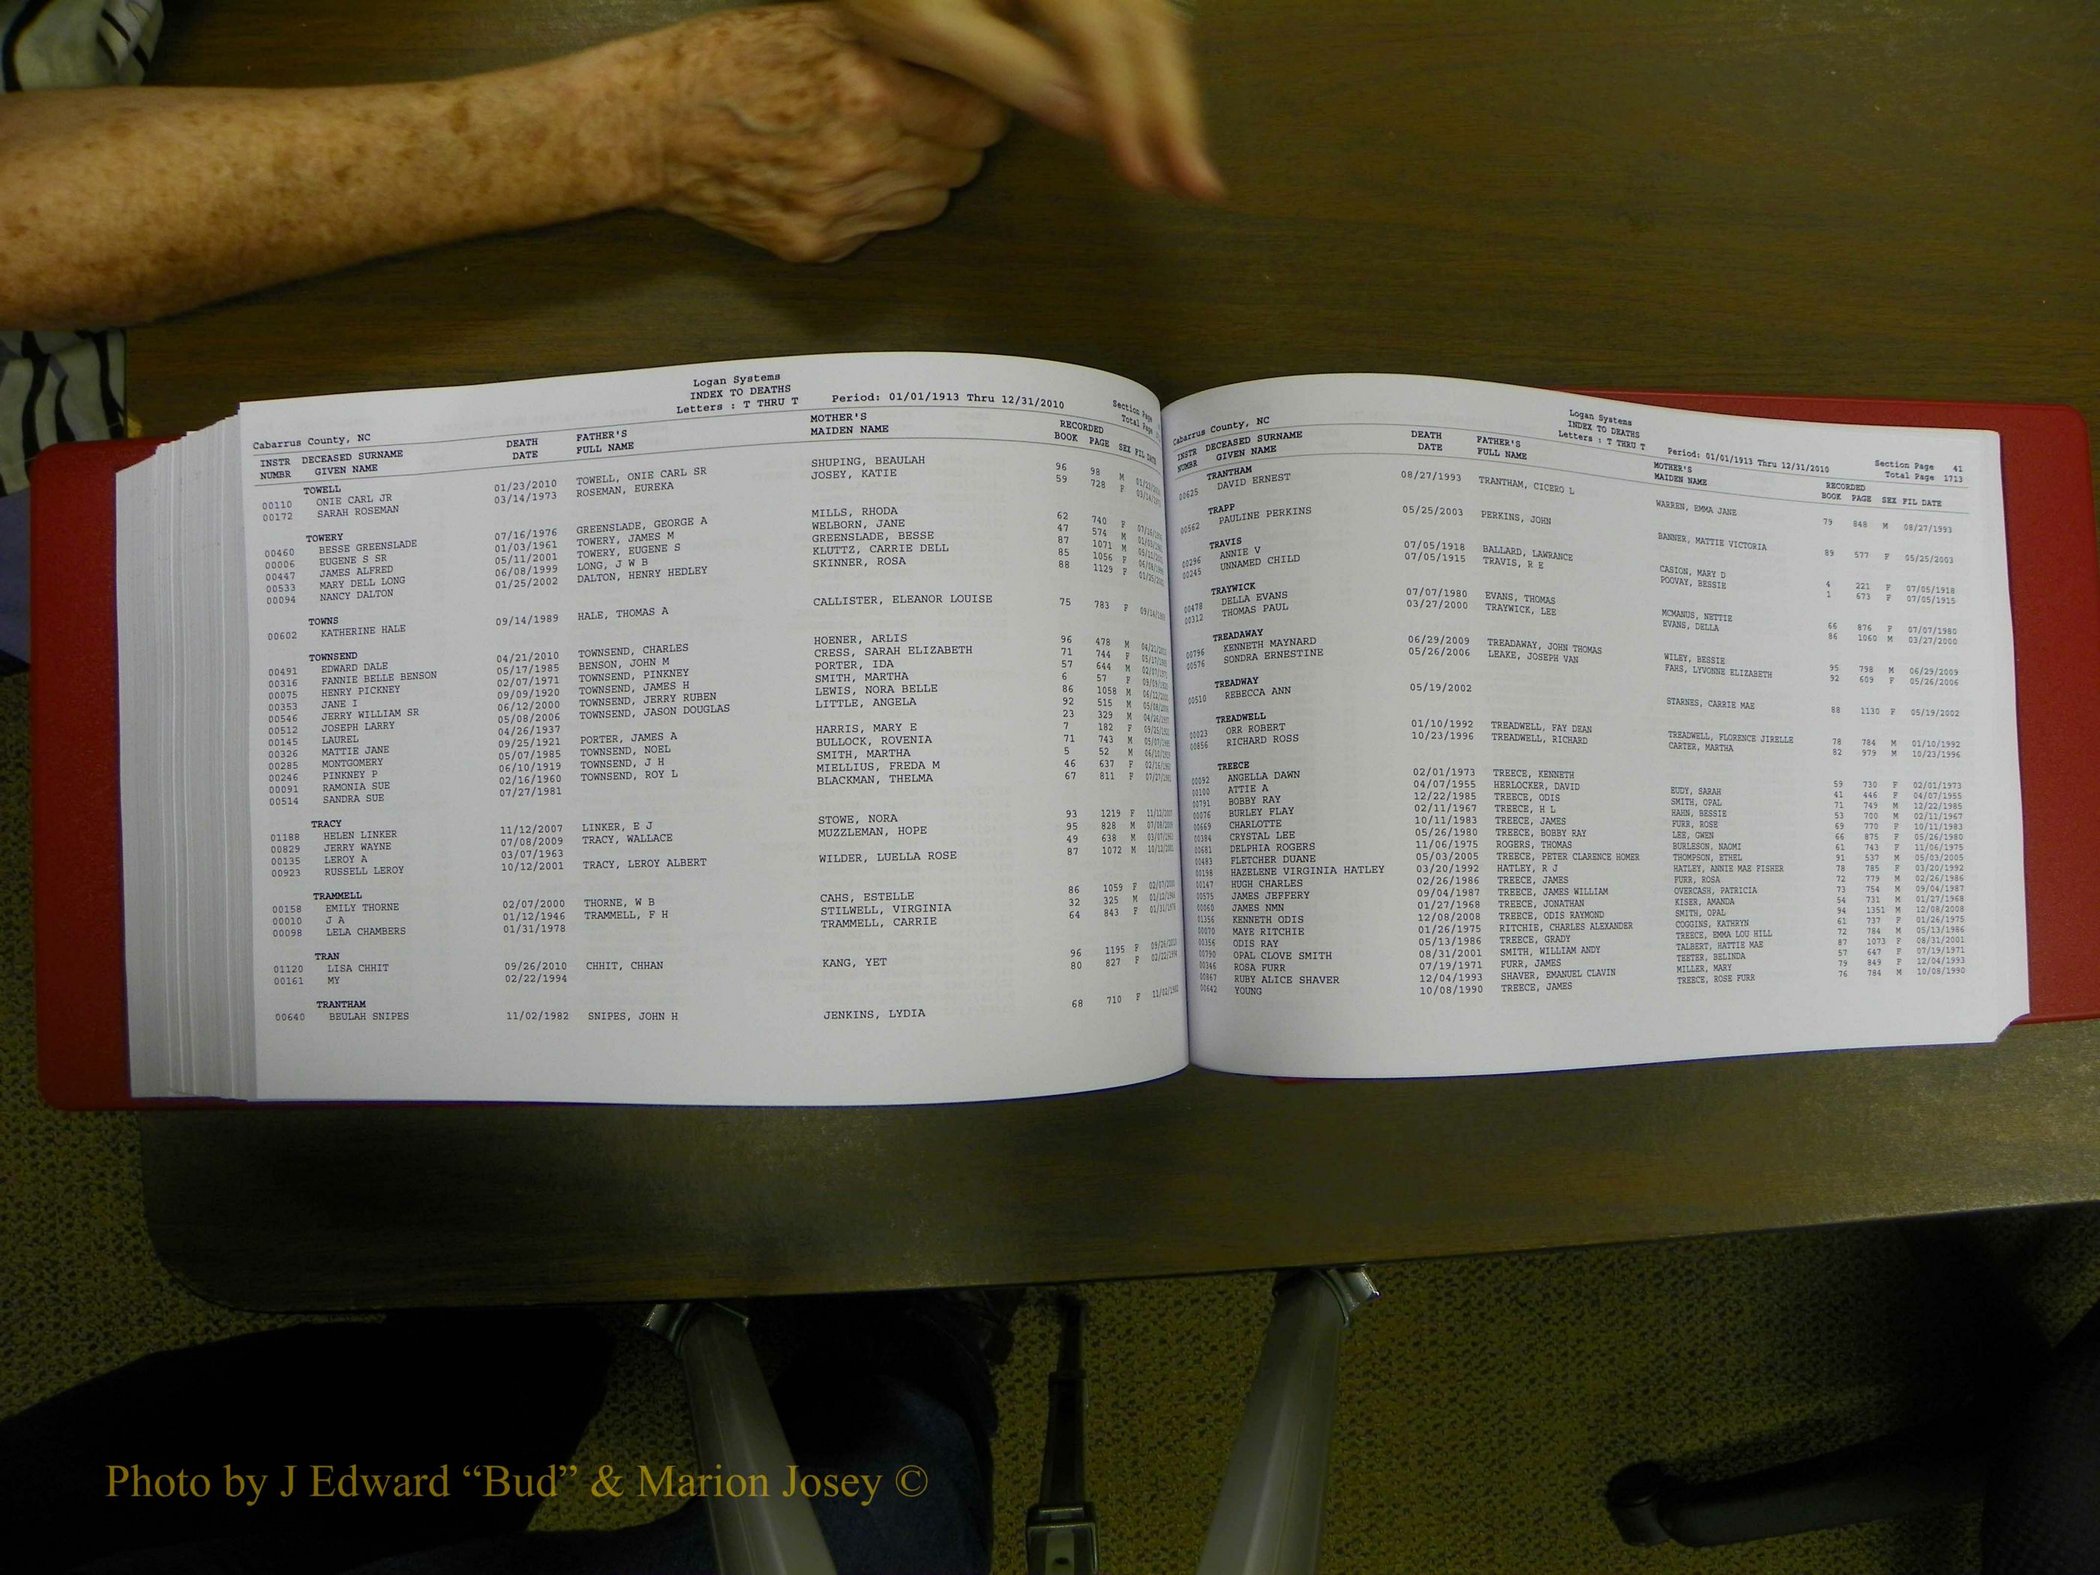 Logan Systems
INDEX TO DEATHS
Letters : T THRU T Period: 01/01/1913 Thru 12/31/2010 Section Page
Cabarrus County, NC Total Page
INSTR NUMBR DECEASED SURNAME GIVEN NAME DEATH DATE FATHER'S FULL NAME MOTHER'S MAIDEN NAME RECORDED BOOK PAGE SEX FIL DATE
TOWELL
00110 ONIE CARL JR 01/23/2010 TOWELL, ONIE CARL SR SHUPING, BEAULAH 96 98 M
00172 SARAH ROSEMAN 03/14/1973 ROSEMAN, EUREKA JOSEY, KATIE 59 728 F
TOWERY
00460 BESSE GREENSLADE 07/16/1976 GREENSLADE, GEORGE A MILLS, RHODA 62 740 F
00006 EUGENE S SR 01/03/1961 TOWERY, JAMES M WELBORN, JANE 47 574 M
00447 JAMES ALFRED 05/11/2001 TOWERY, EUGENE S GREENSLADE, BESSE 87 1071 M
00533 MARY DELL LONG 06/08/1999 LONG, J W B KLUTTZ, CARRIE DELL 85 1056 F
00094 NANCY DALTON 01/25/2002 DALTON, HENRY HEDLEY SKINNER, ROSA 88 1129 F
TOWNS
00602 KATHERINE HALE 09/14/1989 HALE, THOMAS A CALLISTER, ELEANOR LOUISE 75 783 F
TOWNSEND
00491 EDWARD DALE 04/21/2010 TOWNSEND, CHARLES HOENER, ARLIS 96 478 M
00316 FANNIE BELLE BENSON 05/17/1985 BENSON, JOHN M CRESS, SARAH ELIZABETH 71 744 F
00075 HENRY PICKNEY 02/07/1971 TOWNSEND, PINKNEY PORTER, IDA 57 644 M
00353 JANE I 09/09/1920 TOWNSEND, JAMES H SMITH, MARTHA 6 57 F
00546 JERRY WILLIAM SR 06/12/2000 TOWNSEND, JERRY RUBEN LEWIS, NORA BELLE 86 1058 M
00512 JOSEPH LARRY 05/08/2006 TOWNSEND, JASON DOUGLAS LITTLE, ANGELA 92 515 M
00145 LAUREL 04/26/1937 23 329 M
00326 MATTIE JANE 09/25/1921 PORTER, JAMES A HARRIS, MARY E 7 182 F
00285 MONTGOMERY 05/07/1985 TOWNSEND, NOEL BULLOCK, ROVENIA 71 743 M
00246 PINKNEY P 06/10/1919 TOWNSEND, J H SMITH, MARTHA 5 52 M
00091 RAMONIA SUE 02/16/1960 TOWNSEND, ROY L MIELLIUS, FREDA M 46 637 F
00514 SANDRA SUE 07/27/1981 BLACKMAN, THELMA 67 811 F
TRACY
01188 HELEN LINKER 11/12/2007 LINKER, E J STOWE, NORA 93 1219 F 11/12/2007
00829 JERRY WAYNE 07/08/2009 TRACY, WALLACE MUZZLEMAN, HOPE 95 828 M
00135 LEROY A 03/07/1963 49 638 M
00923 RUSSELL LEROY 10/12/2001 TRACY, LEROY ALBERT WILDER, LUELLA ROSE 87 1072 M
TRAMMELL
00158 EMILY THORNE 02/07/2000 THORNE, W B CAHS, ESTELLE 86 1059 F
00010 J A 01/12/1946 TRAMMELL, F H STILWELL, VIRGINIA 32 325 M
00098 LELA CHAMBERS 01/31/1978 TRAMMELL, CARRIE 64 843 F
TRAN
01120 LISA CHHIT 09/26/2010 CHHIT, CHHAN KANG, YET 96 1195 F
00161 MY 02/22/1994 80 827 F
TRANTHAM
00640 BEULAH SNIPES 11/02/1982 SNIPES, JOHN H JENKINS, LYDIA 68 710 F
Logan Systems
INDEX TO DEATHS
Letters : T THRU T Period: 01/01/1913 Thru 12/31/2010 Section Page 41
Cabarrus County, NC Total Page 1713
INSTR NUMBR DECEASED SURNAME GIVEN NAME DEATH DATE FATHER'S FULL NAME MOTHER'S MAIDEN NAME RECORDED BOOK PAGE SEX FIL DATE
TRANTHAM
00625 DAVID ERNEST 08/27/1993 TRANTHAM, CICERO L WARREN, EMMA JANE 79 848 M 08/27/1993
TRAPP
00562 PAULINE PERKINS 05/25/2003 PERKINS, JOHN BANNER, MATTIE VICTORIA 89 577 F 05/25/2003
TRAVIS
00296 ANNIE V 07/05/1918 BALLARD, LAWRANCE CASION, MARY D 4 221 F 07/05/1918
00245 UNNAMED CHILD 07/05/1915 TRAVIS, R E POOVAY, BESSIE 1 673 F 07/05/1915
TRAYWICK
00478 DELLA EVANS 07/07/1980 EVANS, THOMAS MCMANUS, NETTIE 66 876 F 07/07/1980
00312 THOMAS PAUL 03/27/2000 TRAYWICK, LEE EVANS, DELLA 86 1060 M 03/27/2000
TREADAWAY
00796 KENNETH MAYNARD 06/29/2009 TREADAWAY, JOHN THOMAS WILEY, BESSIE 95 798 M 06/29/2009
00576 SONDRA ERNESTINE 05/26/2006 LEAKE, JOSEPH VAN FARS, LYVONNE ELIZABETH 92 609 F 05/26/2006
TREADWAY
00510 REBECCA ANN 05/19/2002 STARNES, CARRIE MAE 88 1130 F 05/19/2002
TREADWELL
00023 ORR ROBERT 01/10/1992 TREADWELL, FAY DEAN TREADWELL, FLORENCE JIRELLE 78 784 M 01/10/1992
00856 RICHARD ROSS 10/23/1996 TREADWELL, RICHARD CARTER, MARTHA 82 979 M 10/23/1996
TREECE
00092 ANGELLA DAWN 02/01/1973 TREECE, KENNETH 59 730 F 02/01/1973
00100 ATTIE A 04/07/1955 HERLOCKER, DAVID EUDY, SARAH 41 446 F 04/07/1955
00791 BOBBY RAY 12/22/1985 TREECE, ODIS SMITH, OPAL 71 749 M 12/22/1985
00076 BURLEY FLAY 02/11/1967 TREECE, H L HAHN, BESSIE 53 700 M 02/11/1967
00669 CHARLOTTE 10/11/1983 TREECE, JAMES FURR, ROSE 69 770 F 10/11/1983
00384 CRYSTAL LEE 05/26/1980 TREECE, BOBBY RAY LEE, GWEN 66 875 F 05/26/1980
00681 DELPHIA ROGERS 11/06/1975 ROGERS, THOMAS BURLESON, NAOMI 61 743 F 11/06/1975
00483 FLETCHER DUANE 05/03/2005 TREECE, PETER CLARENCE HOMER THOMPSON, ETHEL 91 537 M 05/03/2005
00198 HAZELENE VIRGINIA HATLEY 03/20/1992 HATLEY, R J HATLEY, ANNIE MAE FISHER 78 785 F 03/20/1992
00147 HUGH CHARLES 02/26/1986 TREECE, JAMES FURR, ROSA 72 779 M 02/26/1986
00575 JAMES JEFFERY 09/04/1987 TREECE, JAMES WILLIAM OVERCASH, PATRICIA 73 754 M 09/04/1987
00060 JAMES NMN 01/27/1968 TREECE, JONATHAN KISER, AMANDA 54 731 M 01/27/1968
01356 KENNETH ODIS 12/08/2008 TREECE, ODIS RAYMOND SMITH, OPAL 94 1351 M 12/08/2008
00070 MAYE RITCHIE 01/26/1975 RITCHIE, CHARLES ALEXANDER COGGINS, KATHRYN 61 737 F 01/26/1975
00356 ODIS RAY 05/13/1986 TREECE, GRADY TREECE, EMMA LOU HILL 72 784 M 05/13/1986
00790 OPAL CLOVE SMITH 08/31/2001 SMITH, WILLIAM ANDY TALBERT, HATTIE MAE 87 1073 F 08/31/2001
00346 ROSA FURR 07/19/1971 FURR, JAMES TEETER, BELINDA 57 647 F 07/19/1971
00867 RUBY ALICE SHAVER 12/04/1993 SHAVER, EMANUEL CLAVIN MILLER, MARY 79 849 F 12/04/1993
00642 YOUNG 10/08/1990 TREECE, JAMES TREECE, ROSE FURR 76 784 M 10/08/1990
Photo by J Edward “Bud” & Marion Josey ©